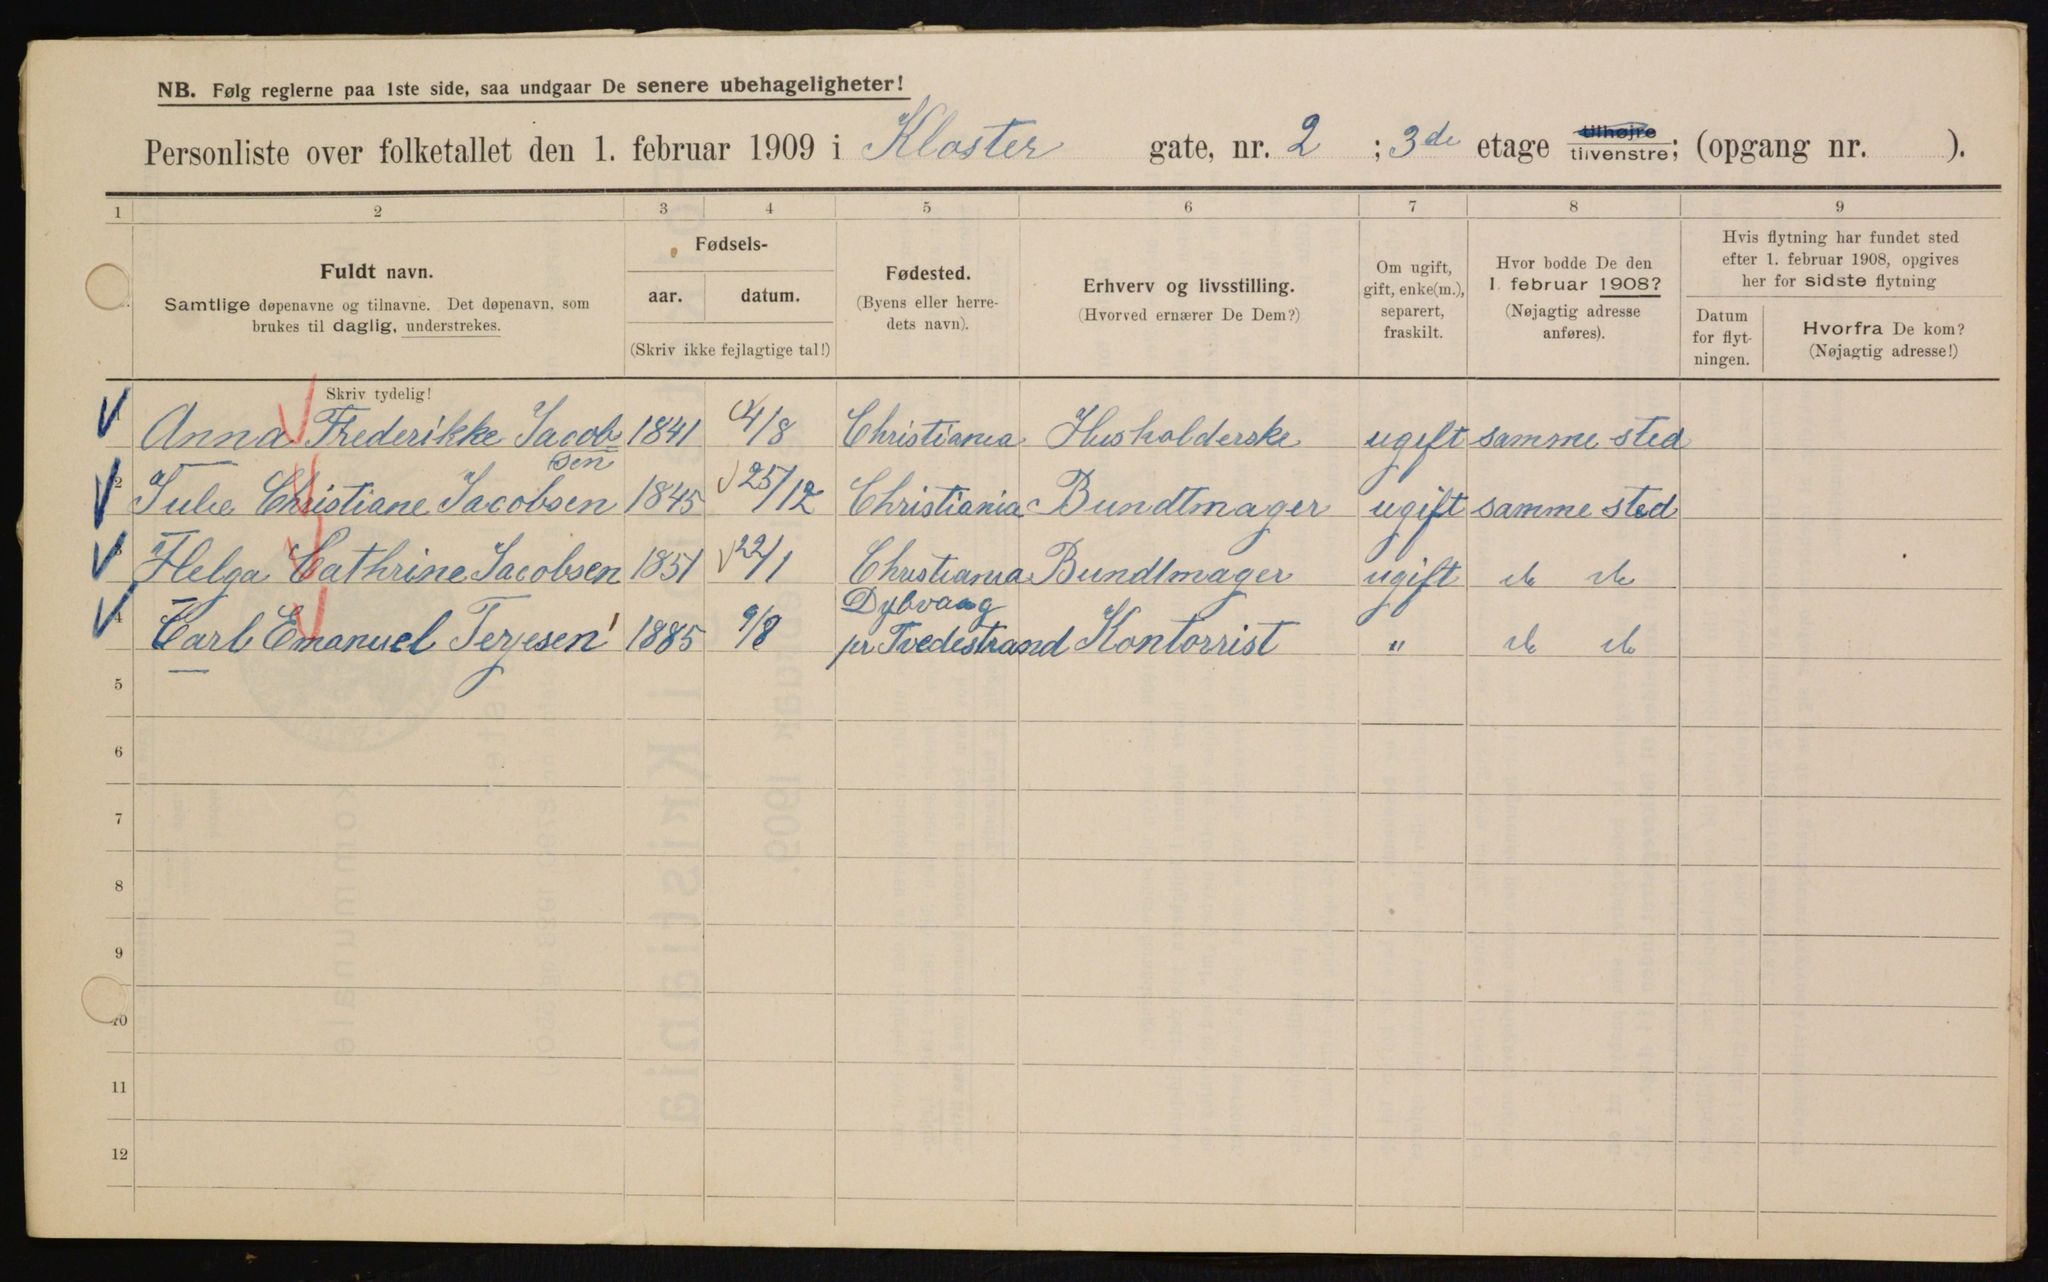 NB. Følg reglerne paa 1ste side, saa undgaar De senere ubehageligheter!
Personliste over folketallet den 1. februar 1909 i Kloster gate, nr. 2 ; 3de etage tilhøjre tilvenstre; (opgang nr. ).
1 2 3 4 5 6 7 8 9
Fuldt navn.
Samtlige døpenavne og tilnavne. Det døpenavn, som
brukes til daglig, understrekes.
Skriv tydelig!
Fødsels-
aar. datum.
(Skriv ikke fejlagtige tal!)
Fødested.
(Byens eller herre-
dets navn).
Erhverv og livsstilling.
(Hvorved ernærer De Dem?)
Om ugift,
gift, enke(m.),
separert,
fraskilt.
Hvor bodde De den
1. februar 1908?
(Nøjagtig adresse
anføres).
Hvis flytning har fundet sted
efter 1. februar 1908, opgives
her for sidste flytning
Datum
for flyt-
ningen.
Hvorfra De kom?
(Nøjagtig adresse!)
Anna Frederikke Jacob 1841 4/8 Christiania Husholderske ugift samme sted
sen
2 Julie Christiane Jacobsen 1845 25/12 Christiania Bundtmager ugift samme sted
3 Helga Cathrine Jacobsen 1851 22/1 Christiania Bundtmager ugift do do
Dybvaag
4 Carl Emanuel Terjesen 1885 9/8 pr Tvedestrand Kontorrist " do do
5
6
7
8
9
10
11
12